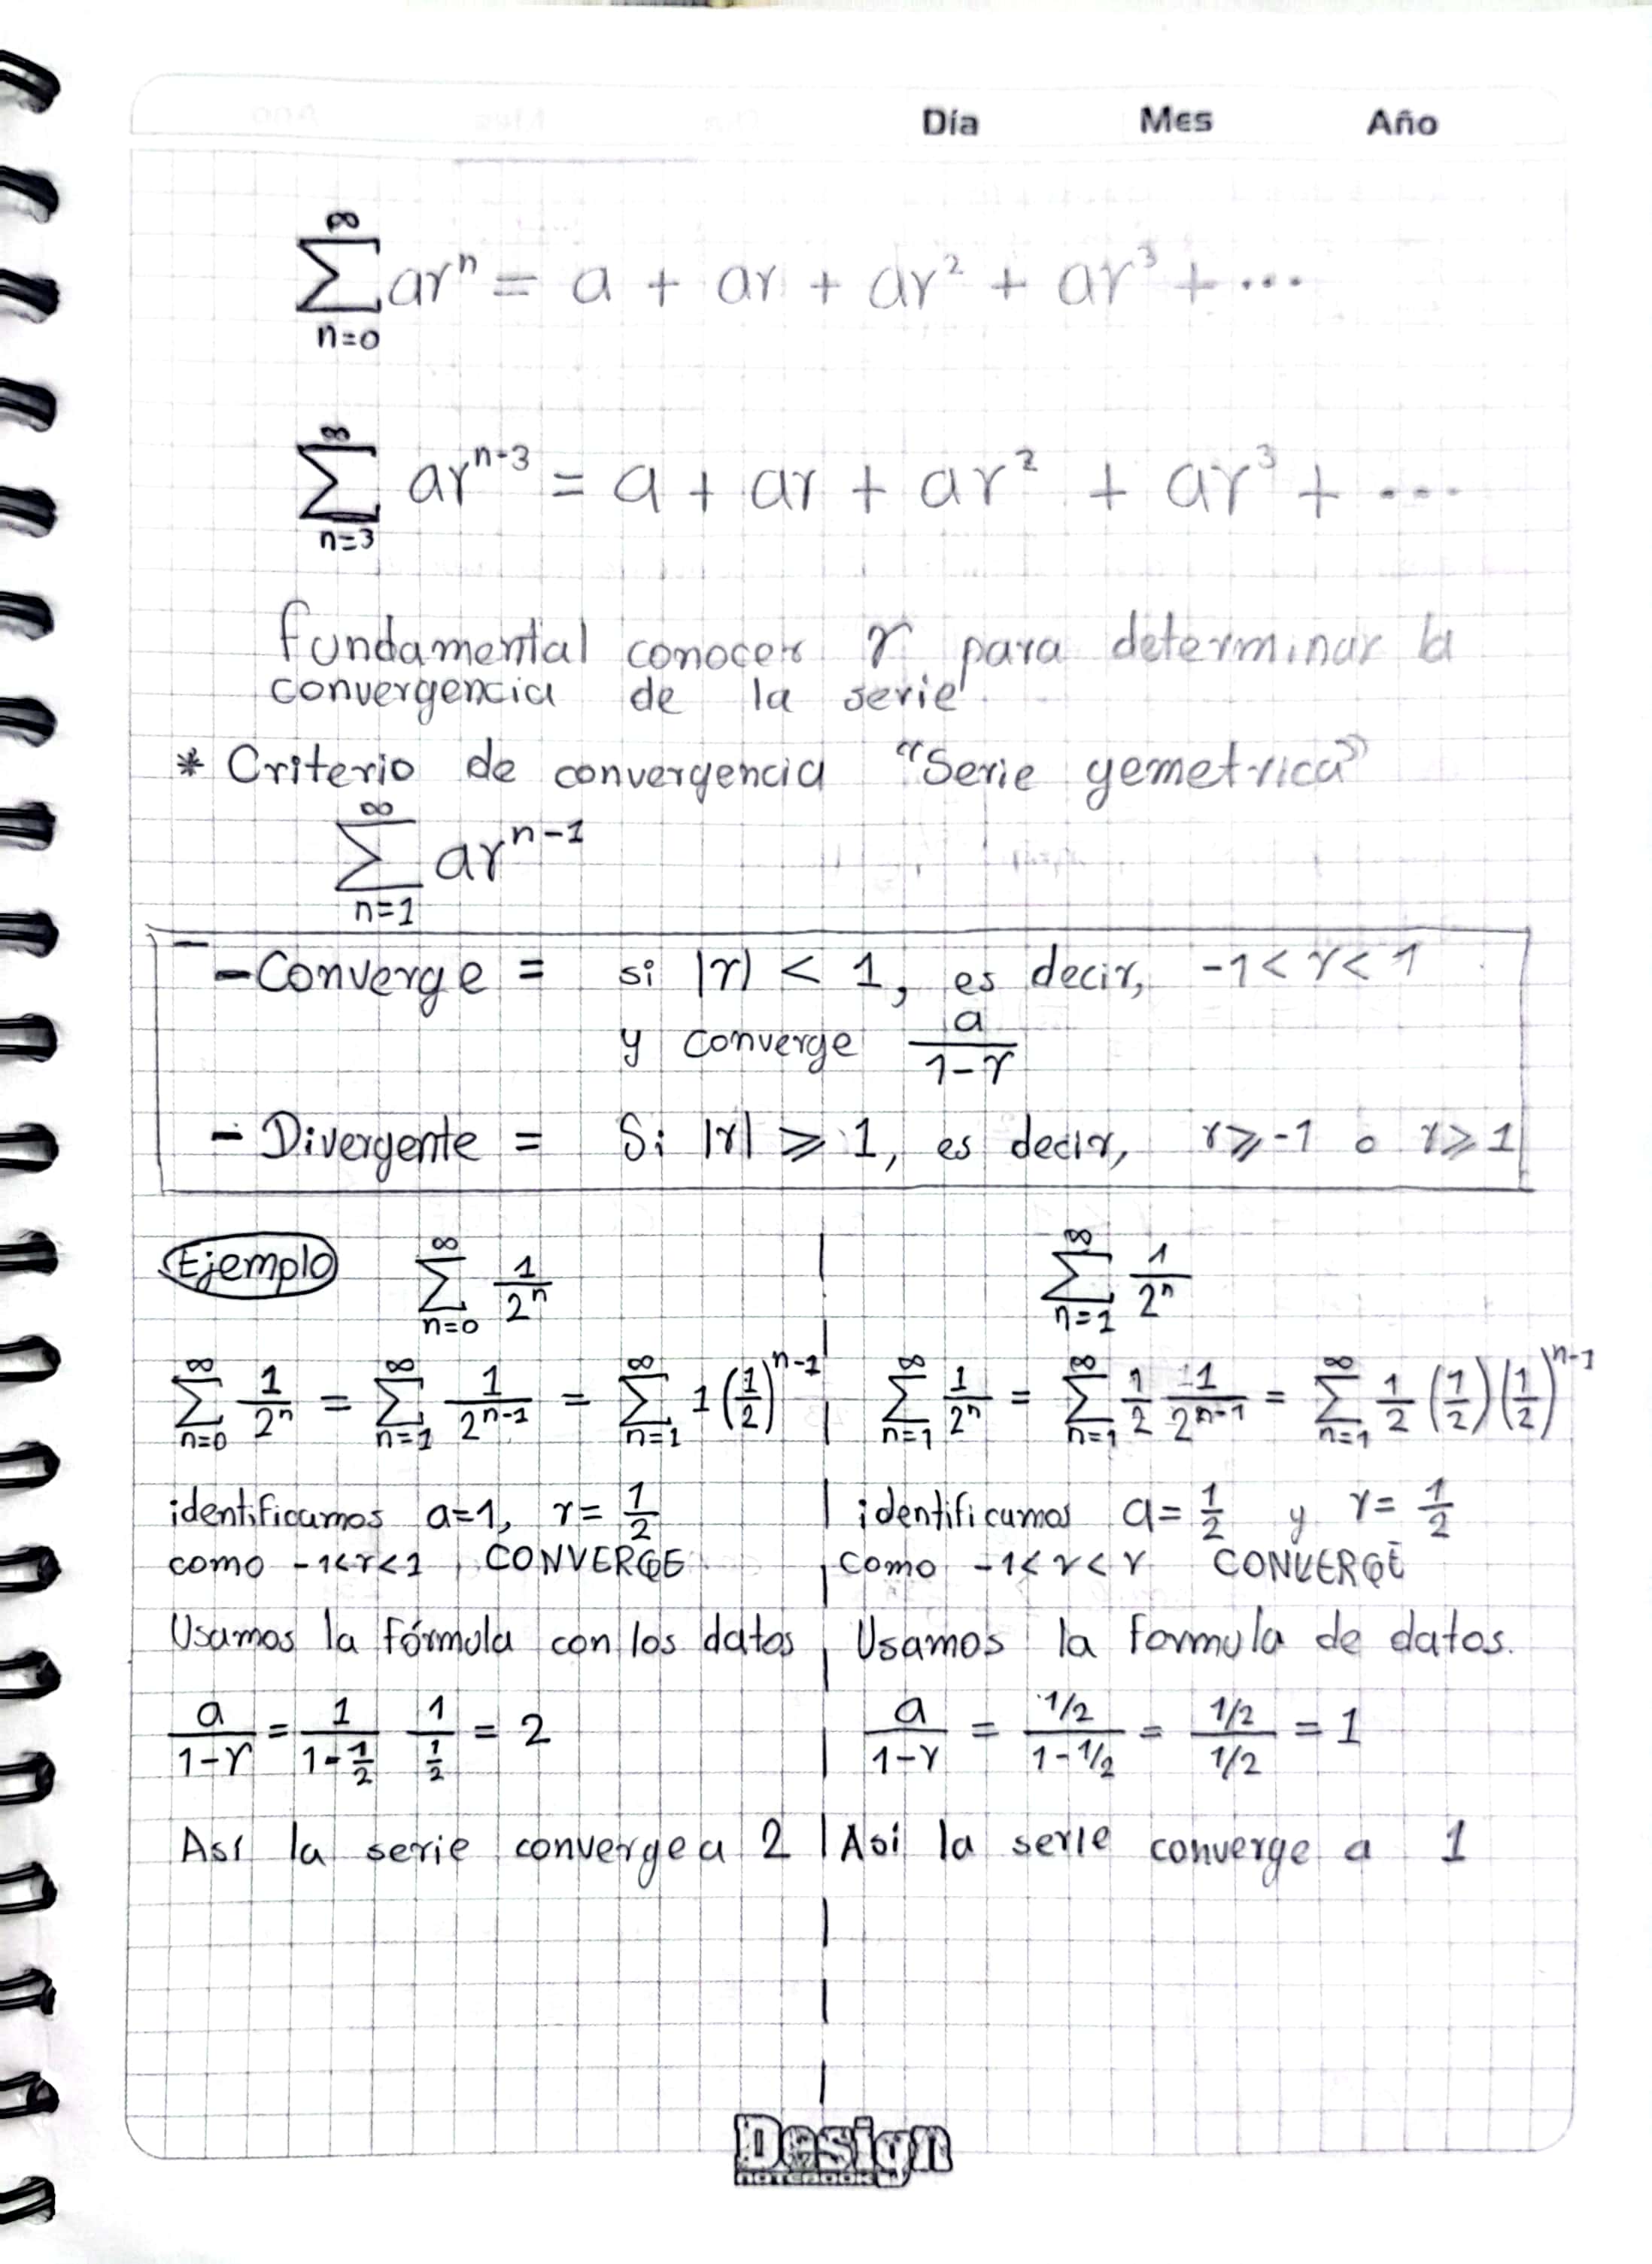 Día Mes Año
∞
∑ arⁿ = a + ar + ar² + ar³ + ...
n=0
∞
∑ arⁿ⁻³ = a + ar + ar² + ar³ + ...
n=3
fundamental conocer r para determinar la
convergencia de la serie
* Criterio de convergencia "Serie gemetrica"
∞
∑ arⁿ⁻¹
n=1
- Converge = si |r| < 1, es decir, -1 < r < 1
y converge a/(1-r)
- Divergente = Si |r| ⩾ 1, es decir, r ⩾ -1 o r ⩾ 1
Ejemplo ∑ (n=0, ∞) 1/2ⁿ
∑ (n=0, ∞) 1/2ⁿ = ∑ (n=1, ∞) 1/2ⁿ⁻¹ = ∑ (n=1, ∞) 1(1/2)ⁿ⁻¹
identificamos a=1, r= 1/2
como -1<r<1 CONVERGE
Usamos la fórmula con los datos
a/(1-r) = 1/(1-1/2) 1/(1/2) = 2
Así la serie converge a 2
∑ (n=1, ∞) 1/2ⁿ
∑ (n=1, ∞) 1/2ⁿ = ∑ (n=1, ∞) 1/2 1/2ⁿ⁻¹ = ∑ (n=1, ∞) 1/2 (1/2)(1/2)ⁿ⁻¹
identificamos a= 1/2 y r= 1/2
como -1< r < r CONVERGE
Usamos la formula de datos.
a/(1-r) = (1/2)/(1-1/2) = (1/2)/(1/2) = 1
Asi la serie converge a 1
Design
NOTEBOOK